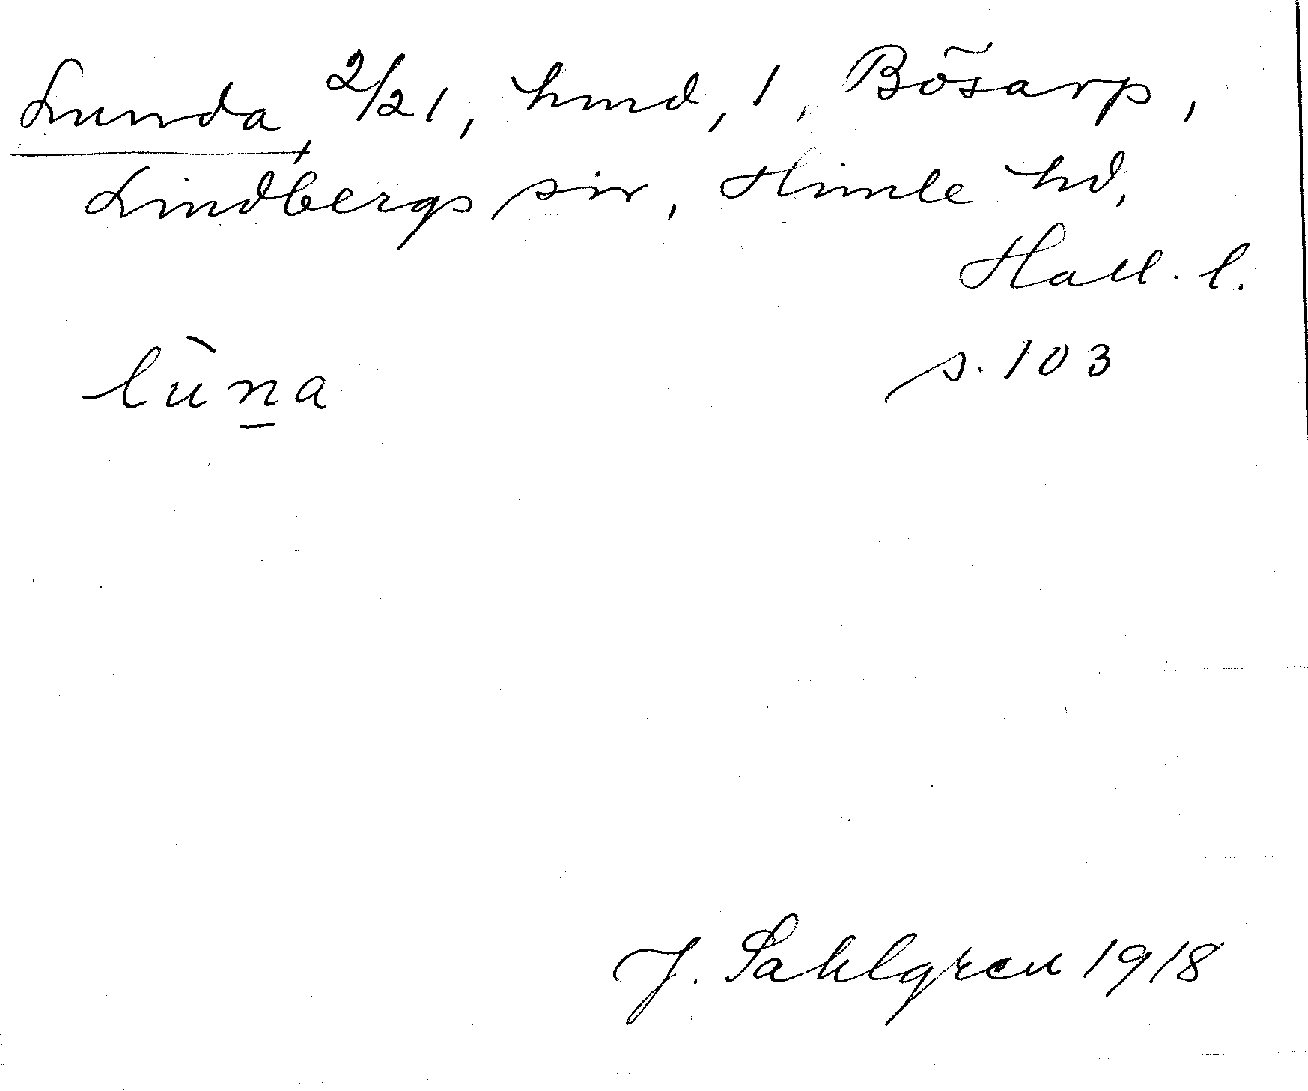 Lunda, 2/21, hmd, 1, Bösarp,
Lindbergs sn, Himle hd,
Hall. l.
lùṉa s. 103
J. Sahlgren 1918